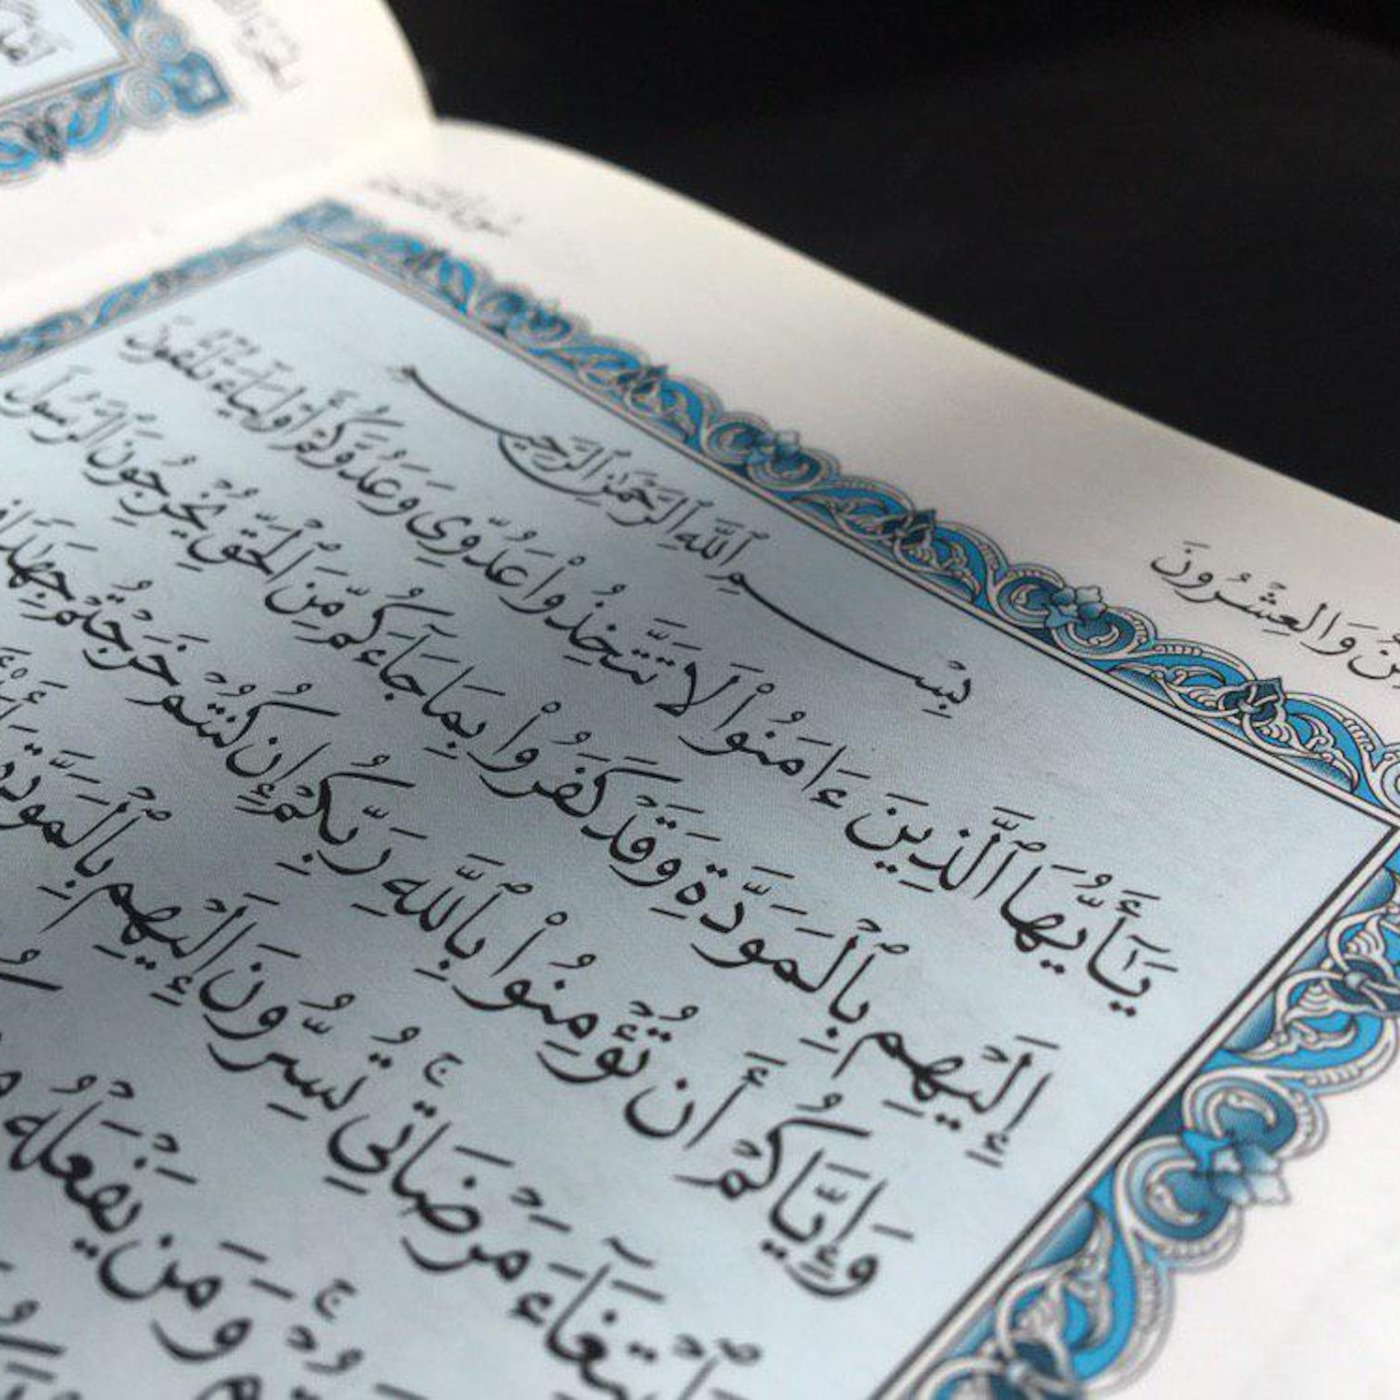 نَ وَالْعِشْرُونَ
بِسْمِ ٱللَّهِ ٱلرَّحْمَٰنِ ٱلرَّحِيمِ
يَـٰٓأَيُّهَا ٱلَّذِينَ ءَامَنُوا۟ لَا تَتَّخِذُوا۟ عَدُوِّى وَعَدُوَّكُمْ أَوْلِيَآءَ تُلْقُونَ
إِلَيْهِم بِٱلْمَوَدَّةِ وَقَدْ كَفَرُوا۟ بِمَا جَآءَكُم مِّنَ ٱلْحَقِّ يُخْرِجُونَ ٱلرَّسُولَ
وَإِيَّاكُمْ أَن تُؤْمِنُوا۟ بِٱللَّهِ رَبِّكُمْ إِن كُنتُمْ خَرَجْتُمْ جِهَـٰدًا
مَرْضَاتِى ۚ تُسِرُّونَ إِلَيْهِم بِٱلْمَوَدَّةِ
وَمَن يَفْعَلْهُ